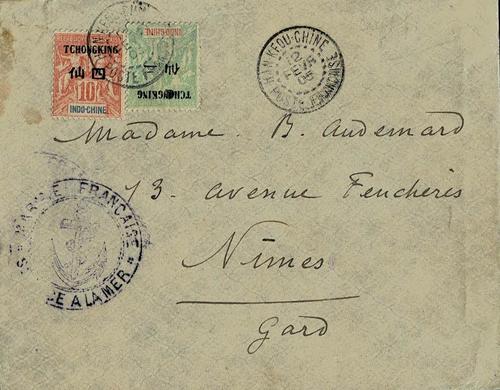 TCHONGKING
仙 四
10
INDO-CHINE
INDO-CHINE
仙
TCHONGKING
HANKEOU-CHINE
POSTE FRANÇAISE
Madame. B. Audemard
13. avenue Feuchères
Nîmes
Gard
MARINE FRANÇAISE
A LA MER